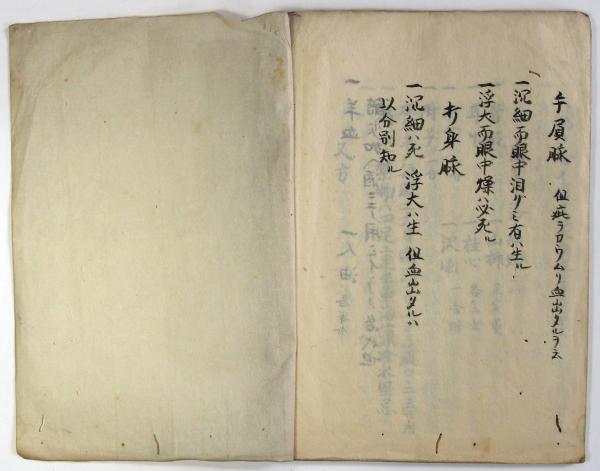 手負脉 但疵ヲカウムリ血出タルヲ云
一沉細而眼中泪グミ有ハ生ル
一浮大而眼中燥ハ必死ル
打身脉
一沉細ハ死 浮大ハ生 但血出タルハ
以分別知ル